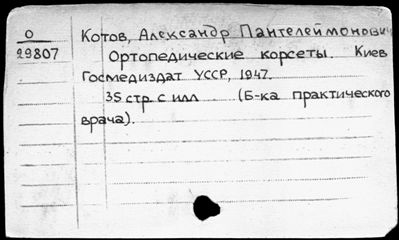 О
29807
Котов, Александр Пантелеймонович
Ортопедические корсеты. Киев
Госмедиздат УССР, 1947.
35 стр. с илл (Б-ка практического
врача).